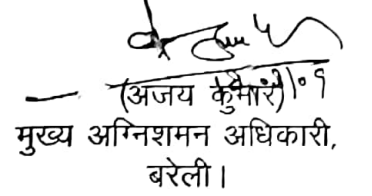 (अजय कुमार)
मुख्य अग्निशमन अधिकारी,
बरेली।